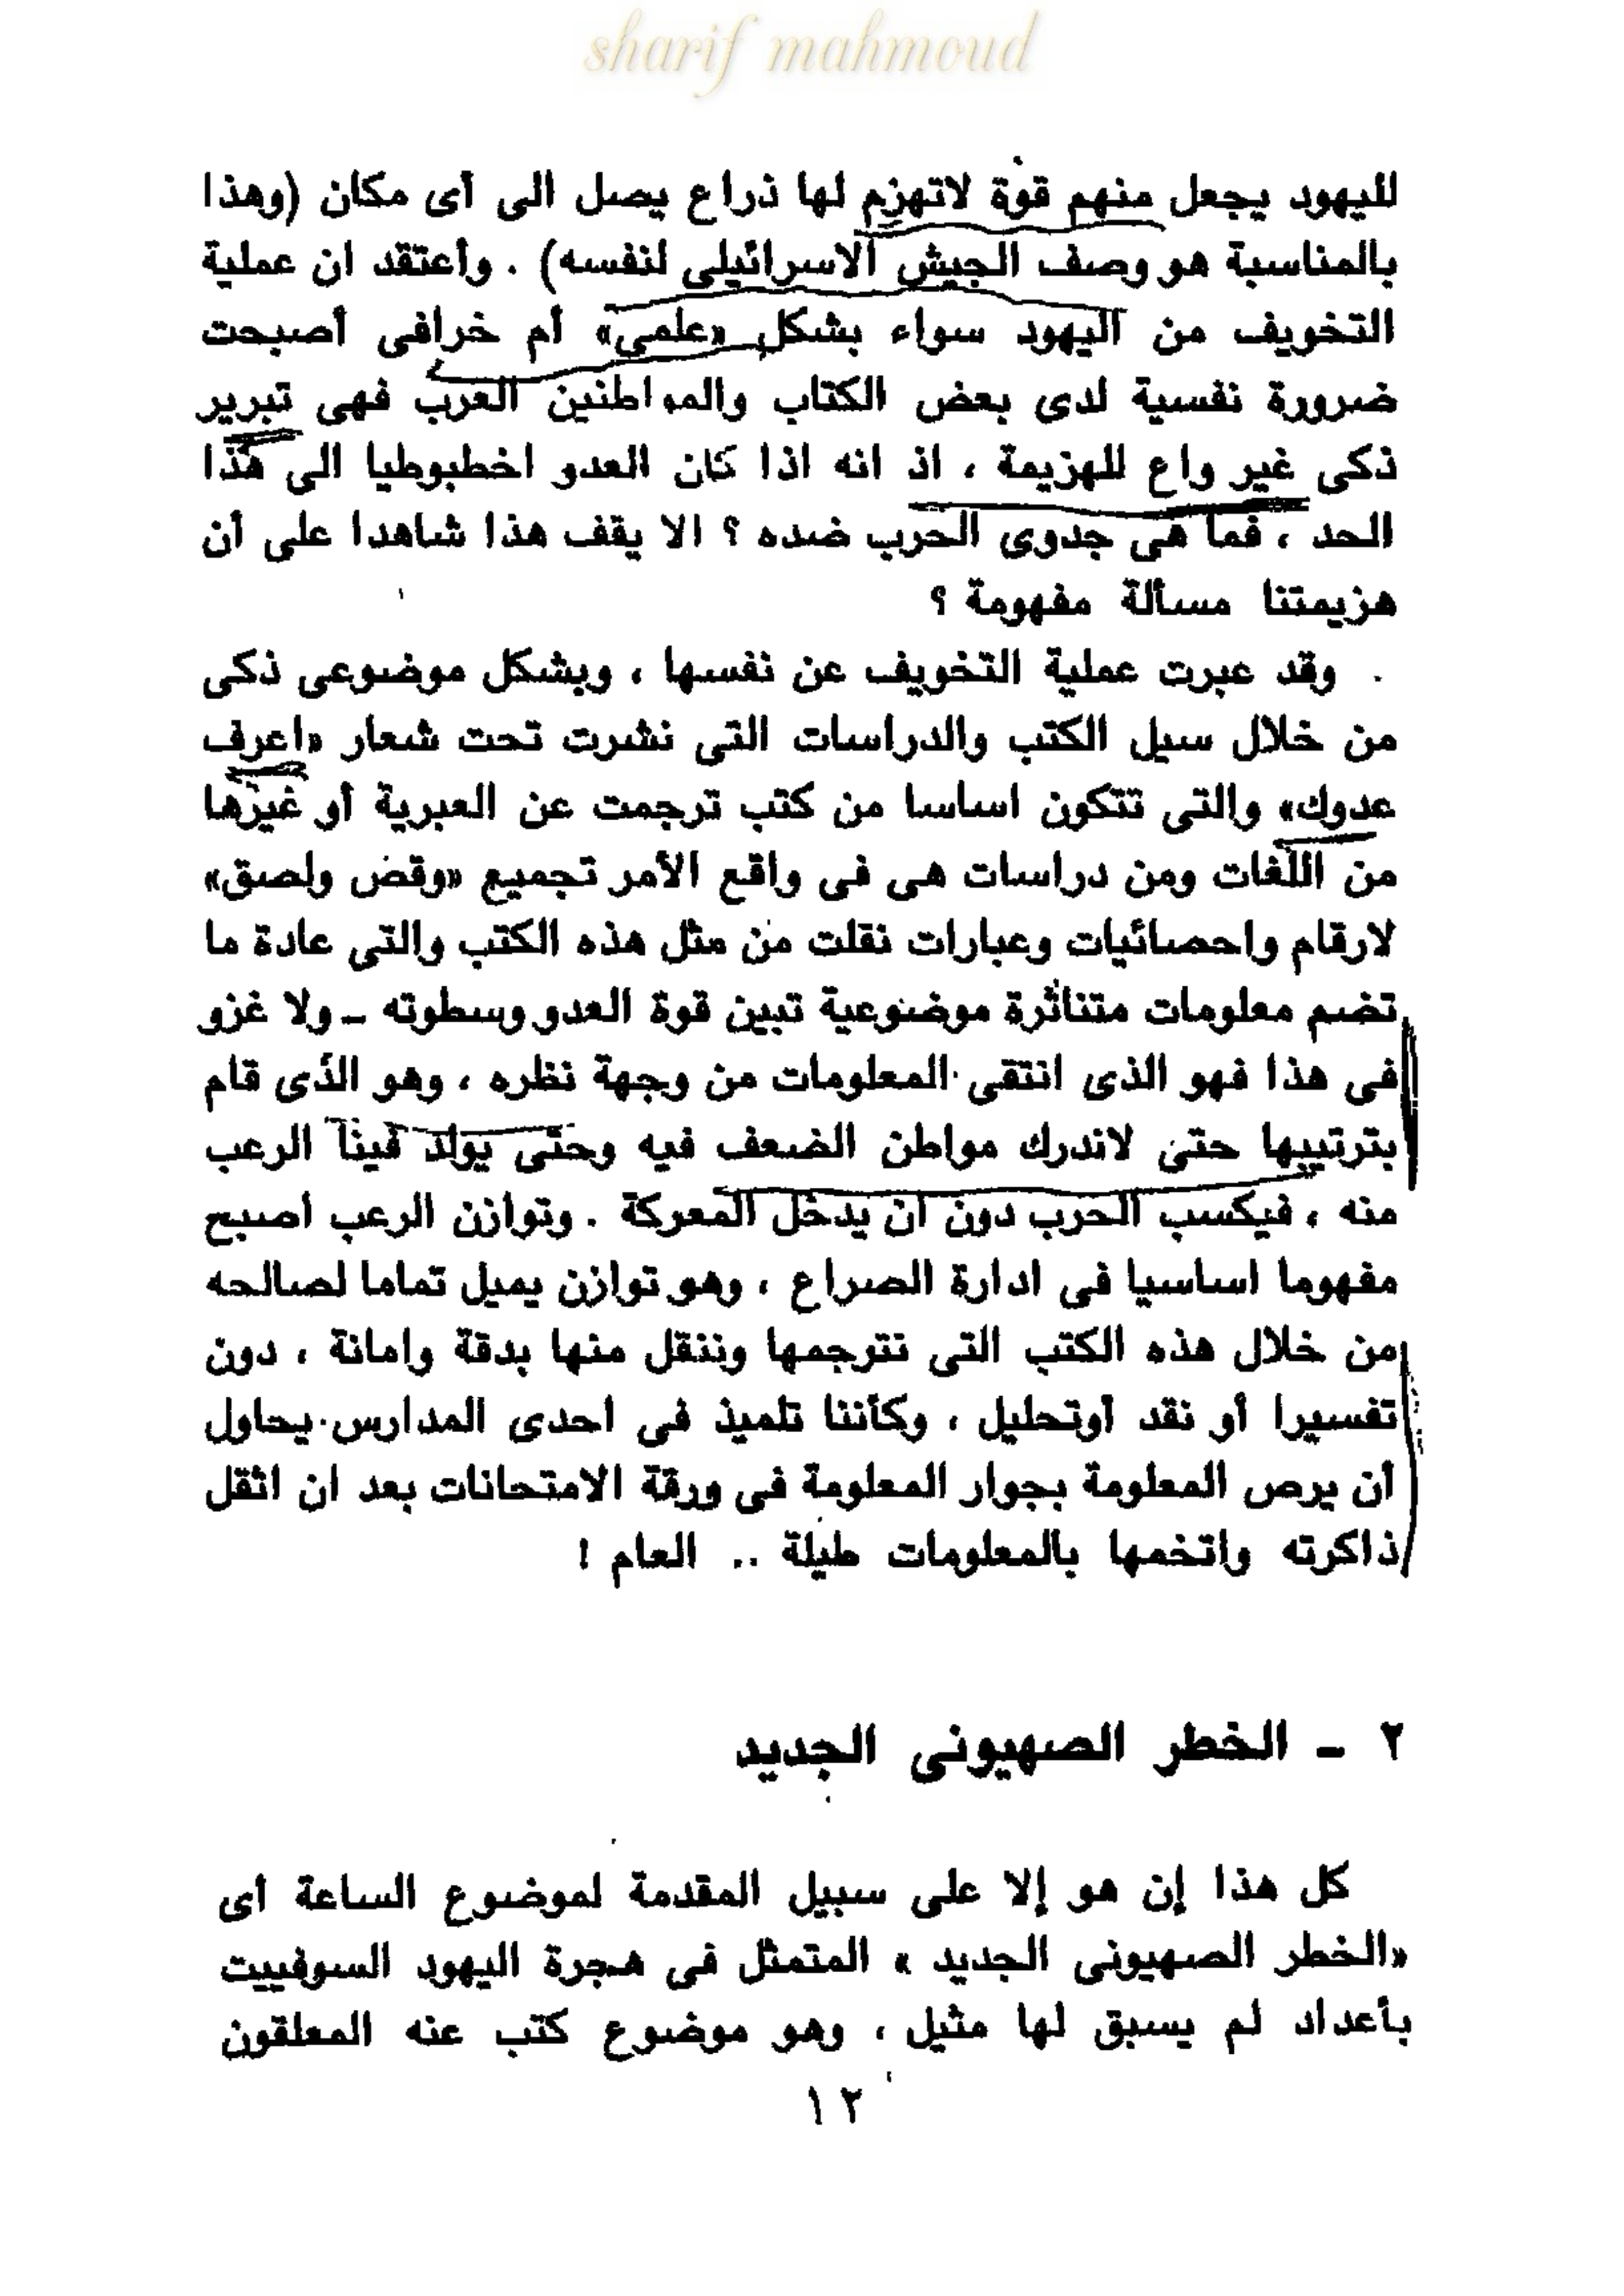 sharif mahmoud
لليهود يجعل منهم قوة لاتهزم لها ذراع يصل الى أى مكان (وهذا
بالمناسبة هو وصف الجيش الاسرائيلى لنفسه) . وأعتقد ان عملية
التخويف من اليهود سواء بشكل «علمى» أم خرافى أصبحت
ضرورة نفسية لدى بعض الكتاب والمواطنين العرب فهى تبرير
ذكى غير واع للهزيمة ، اذ انه اذا كان العدو اخطبوطيا الى هذا
الحد ، فما هى جدوى الحرب ضده ؟ الا يقف هذا شاهدا على أن
هزيمتنا مسألة مفهومة ؟
وقد عبرت عملية التخويف عن نفسها ، وبشكل موضوعى ذكى
من خلال سيل الكتب والدراسات التى نشرت تحت شعار «اعرف
عدوك» والتى تتكون اساسا من كتب ترجمت عن العبرية أو غيرها
من اللغات ومن دراسات هى فى واقع الأمر تجميع «وقض ولصق»
لارقام واحصائيات وعبارات نقلت من مثل هذه الكتب والتى عادة ما
تضم معلومات متناثرة موضوعية تبين قوة العدو وسطوته – ولا غزو
فى هذا فهو الذى انتقى المعلومات من وجهة نظره ، وهو الذى قام
بترتيبها حتى لاندرك مواطن الضعف فيه وحتى يولد فينا الرعب
منه ، فيكسب الحرب دون ان يدخل المعركة . وتوازن الرعب اصبح
مفهوما اساسيا فى ادارة الصراع ، وهو توازن يميل تماما لصالحه
من خلال هذه الكتب التى نترجمها وننقل منها بدقة وامانة ، دون
تفسيرا أو نقد أوتحليل ، وكأننا تلميذ فى احدى المدارس يحاول
أن يرص المعلومة بجوار المعلومة فى ورقة الامتحانات بعد ان اثقل
ذاكرته واتخمها بالمعلومات طيلة .. العام !
٢ – الخطر الصهيونى الجديد
كل هذا إن هو إلا على سبيل المقدمة لموضوع الساعة أى
«الخطر الصهيونى الجديد » المتمثل فى هجرة اليهود السوفييت
بأعداد لم يسبق لها مثيل ، وهو موضوع كتب عنه المعلقون
١٢